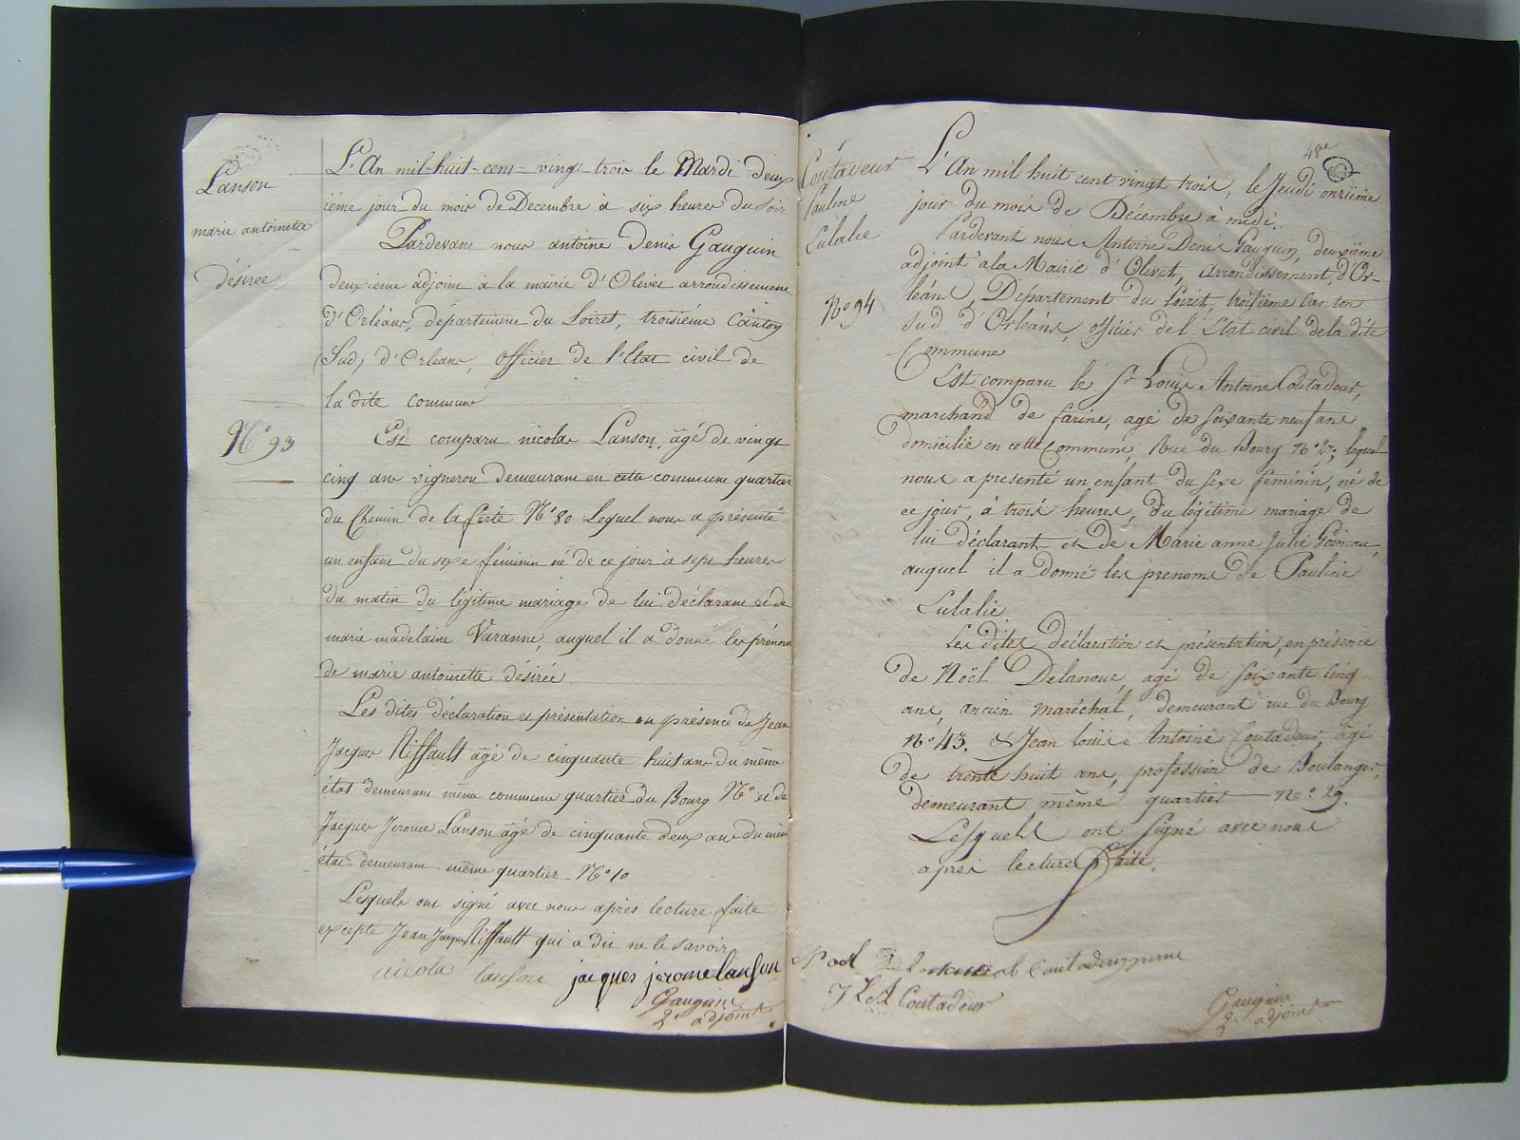 Lanson
marie antoinette
désirée
N.° 93
L'An mil-huit-cent-vingt-trois le Mardi deux
ieme jour du mois de Decembre à six heures du soir
Pardevant nous antoine Denis Gauguin
deuxieme adjoint à la mairie d'Olivet arrondissement
d'Orléans, département du Loiret, troisieme Canton
(Sud) d'Orleans, officier de l'Etat civil de
la dite commune
Est comparu nicolas Lanson, âgé de vingt
cinq ans vigneron demeurant en cette commune quartier
du Chemin de la ferté N.° 80 Lequel nous a présenté
un enfant du sexe féminin né de ce jour à sept heures
du matin du légitime mariage de lui déclarant et de
marie madelaine Varanne, auquel il a donné les prénoms
de marie antoinette désirée
Les dites déclaration et présentation en présence de Jean
Jacques Riffault âgé de cinquante huit ans du même
état demeurant même commune quartier du Bourg N.° et de
Jacques Jerome Lanson âgé de cinquante deux ans du même
état demeurant même quartier N.° 10
Lesquels ont signé avec nous après lecture faite
excepté Jean Jacques Riffault qui a dit ne le savoir
nicola lanson jacques jerome lanson
Gauguin
2e adjoint
48e
Coutadeur
Pauline
Eulalie
N.° 94
L'An mil huit cent vingt trois, le Jeudi onzième
jour du mois de Décembre à midi.
Pardevant nous Antoine Denis Gauguin, deuxième
adjoint à la Mairie d'Olivet, Arrondissement d'Or-
léans, Departement du Loiret, troisième Canton
Sud d'Orléans, officier de l'Etat civil de la dite
Commune
Est comparu le Sr Louis Antoine Coutadeur,
marchand de farine, agé de soixante neuf ans
domicilié en cette Commune, Rue du Bourg N.° lequel
nous a presenté un enfant du sexe féminin, né de
ce jour, à trois heures, du légitime mariage de
lui déclarant et de Marie anne Julie
auquel il a donné les prenoms de Pauline
Eulalie
Les dites déclaration et présentation, en présence
de Nöel Delanoue, agé de soixante cinq
ans, ancien maréchal, demeurant rue du Bourg
N.° 43. & Jean louis Antoine Coutadeur, âgé
de trente huit ans, profession de Boulanger,
demeurant même quartier N.° 29.
Lesquels ont signé avec nous
après lecture faite.
Noel Coutadeur
J L A Coutadeur
Gauguin
2e adjoint